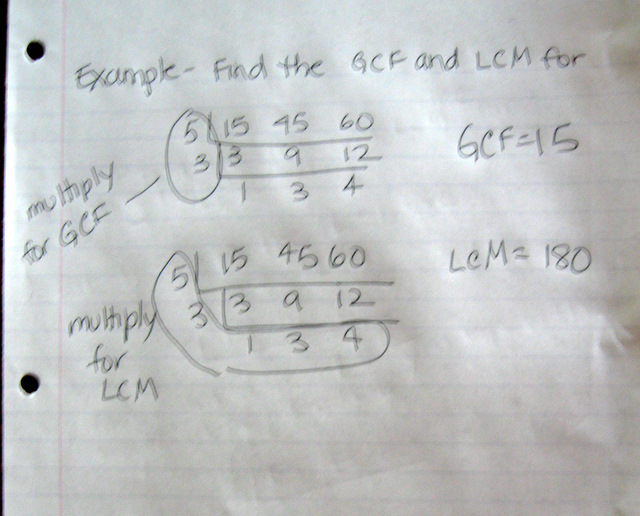 Example- Find the GCF and LCM for
5 15 45 60
3 3 9 12
1 3 4
GCF=15
multiply
for GCF
5 15 45 60
3 3 9 12
1 3 4
LCM= 180
multiply
for
LCM